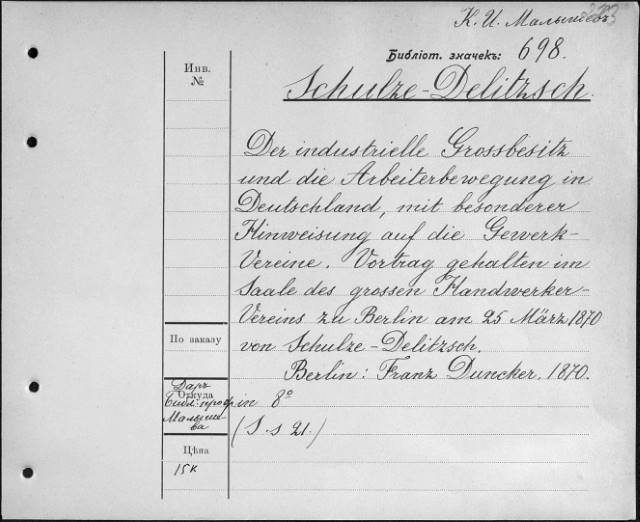 К. И. Малышевъ
Библіот. значекъ: 698.
Инв.
№
Schulze-Delitzsch.
Der industrielle Grossbesitz
und die Arbeiterbewegung in
Deutschland, mit besonderer
Hinweisung auf die Gewerk-
Vereine. Vortrag gehalten im
Saale des grossen Handwerker-
Vereins zu Berlin am 25 März 1870
По заказу
von Schulze-Delitzsch.
Berlin: Franz Duncker. 1870.
Даръ
Откуда
Библ. проф.
in 8º
Малыше-
ва
(S. s 21.)
Цѣна
15 к